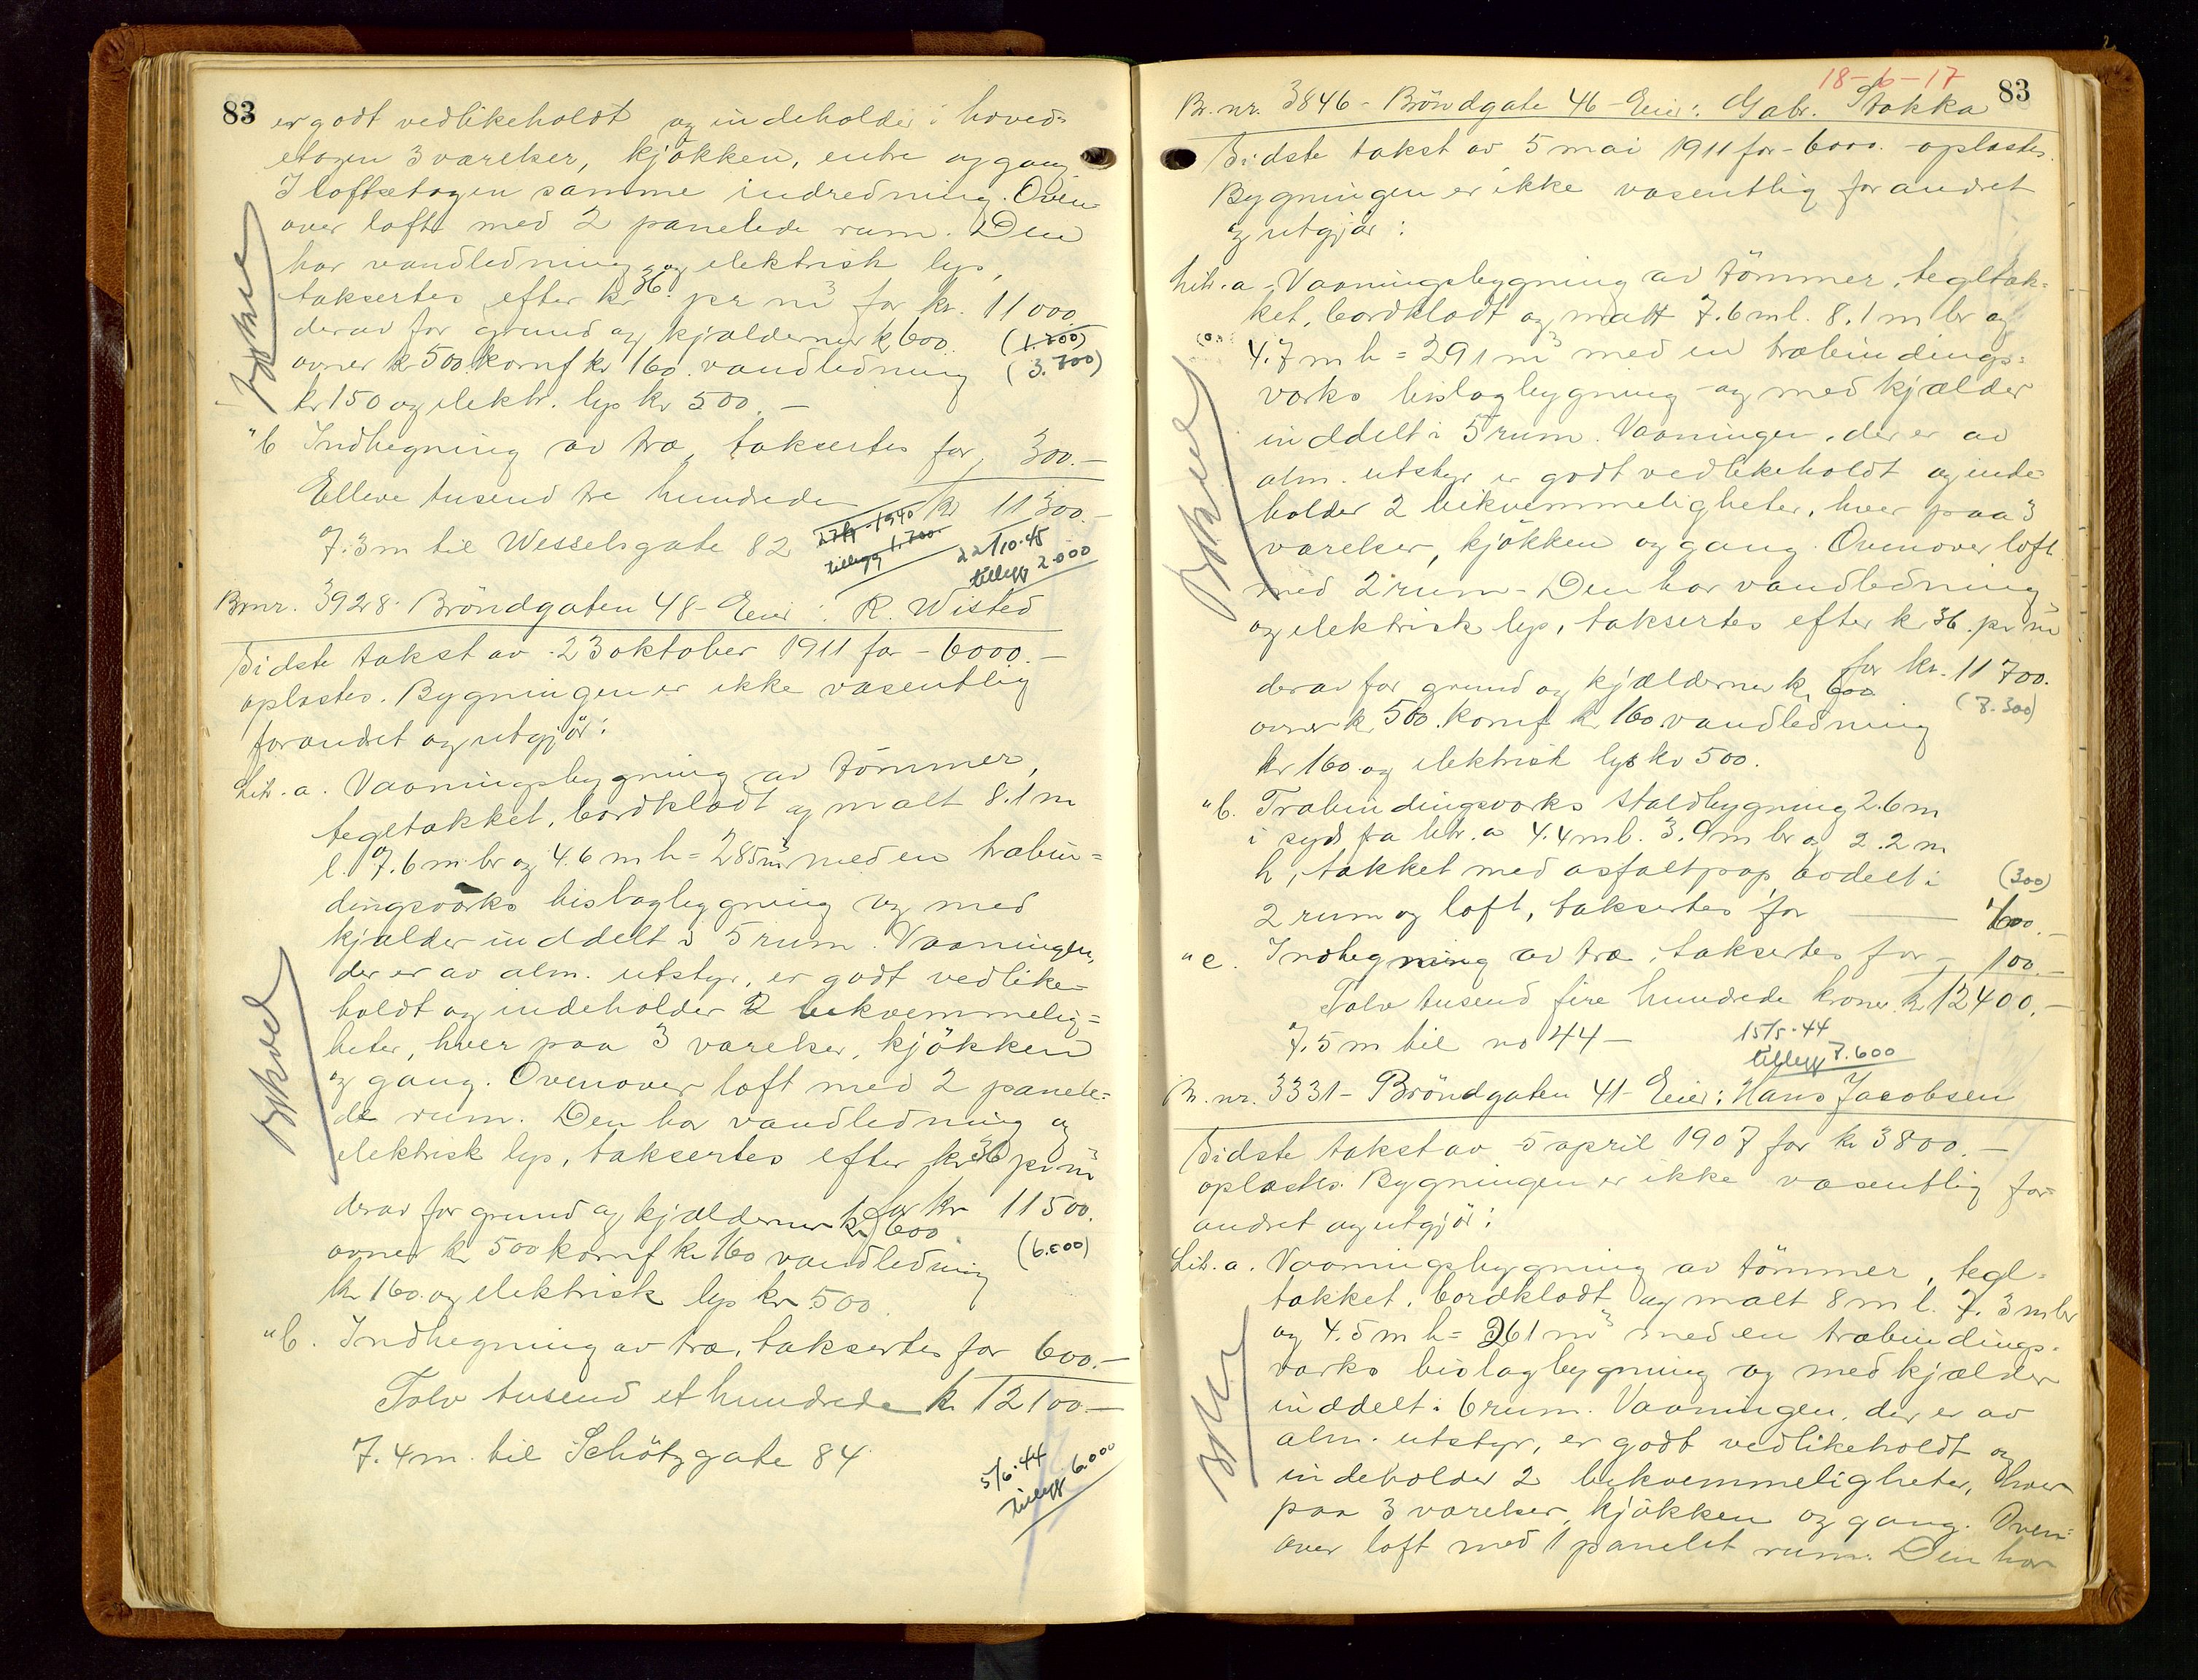 83
er godt vedlikeholdt og indeholder i hoved=
etagen 3 værelser, kjökken, entre og gang
I loftsetagen samme indredning. Oven
over loft med 2 panelede rum. Den
har vandledning og elektrisk lys,
taksertes efter kr 36. pr m³ for kr. 11000
derav for grund og kjældermur kr 600 (1.700)
ovner kr 500 komf kr 160. vandledning (3.700)
kr 150 og elektr. lys kr 500.-
"b Indhegning av træ, taksertes for, 300.-
Elleve tusend tre hundrede kr 11300.-
7.3 m til Wesselsgate 82
1940
tillegg 1.700
22/10-45
tillegg 2.000
Br.nr. 3928. Bröndgaten 48 - Eier: R. Wisted
Sidste takst av 23 oktober 1911 for - 6000.-
oplæstes. Bygningen er ikke væsentlig
forandret og utgjör:
Litr. a. Vaaningsbygning av tömmer,
tegltækket, bordklædt og målt 8.1 m
l. 7.6 m br og 4.6 m h = 285 m³ med en træbin=
dingsværks bislagbygning og med
kjælder inddelt i 5 rum. Vaaningen,
der er av alm. utstyr, er godt vedlike=
holdt og indeholder 2 bekvemmelig=
heter, hver paa 3 værelser, kjökken
og gang. Ovenover loft med 2 panele=
de rum. Den har vandledning og
elektrisk lys, taksertes efter kr 36 pr m³
for kr 11500.
derav for grund og kjældermur kr 600
ovner kr 500 komf kr 160 vandledning (6.000)
kr 160. og elektrisk lys kr 500.
"b. Indhegning av træ, taksertes for 600.-
Tolv tusend et hundrede kr 12100.-
7.4 m. til Schötzgate 84
5/6.44
tillegg 6.000
18-6-17
83
Br. nr. 3846 - Bröndgate 46 - Eier: Gabr. Stokka
Sidste takst av 5 mai 1911 for - 6000. - oplæstes.
Bygningen er ikke væsentlig forandret
og utgjör:
Litr. a. Vaaningsbygning av tömmer, tegltæk=
ket, bordklædt og målt 7.6 m l. 8.1 m br og
4.7 m h = 291 m³ med en træbindings=
værks bislagbygning og med kjælder
inddelt i 5 rum. Vaaningen, der er av
alm. utstyr er godt vedlikeholdt og inde=
holder 2 bekvemmeligheter, hver paa 3
værelser, kjökken og gang. Ovenover loft
med 2 rum - Den har vandledning
og elektrisk lys, taksertes efter kr 36. pr m³
for kr. 11700.
derav for grund og kjældermur kr 600 (7.300)
ovner kr 500. komf kr 160 vandledning
kr 160. og elektrisk lys kr 500.
"b. Træbindingsværks staldbygning 2.6 m
i syd fra litr. a 4.4 m l. 3.9 m br og 2.2 m
h, tækket med asfaltpap, avdelt i (300)
2 rum og loft, taksertes for 600.-
"c. Indhegning av træ, taksertes for, 100.-
Tolv tusend fire hundrede kroner kr 12400.-
7.5 m til no 44 -
15/5.44
tillegg 7.600
Br. nr. 3331 - Bröndgaten 41 - Eier: Hans Jacobsen
Sidste takst av 5 april 1907 for kr 3800.-
oplæstes. Bygningen er ikke væsentlig for=
andret og utgjör:
Litr. a. Vaaningsbygning av tömmer, tegl=
tækket, bordklædt og målt 8 m l. 7.3 m br
og 4.5 m h = 261 m³ med en træbindings=
værks bislagbygning og med kjælder
inddelt i 6 rum. Vaaningen, der er av
alm. utstyr, er godt vedlikeholdt og
indeholder 2 bekvemmeligheter, hver
paa 3 værelser, kjökken og gang. Oven=
over loft med 1 panelet rum. Den har